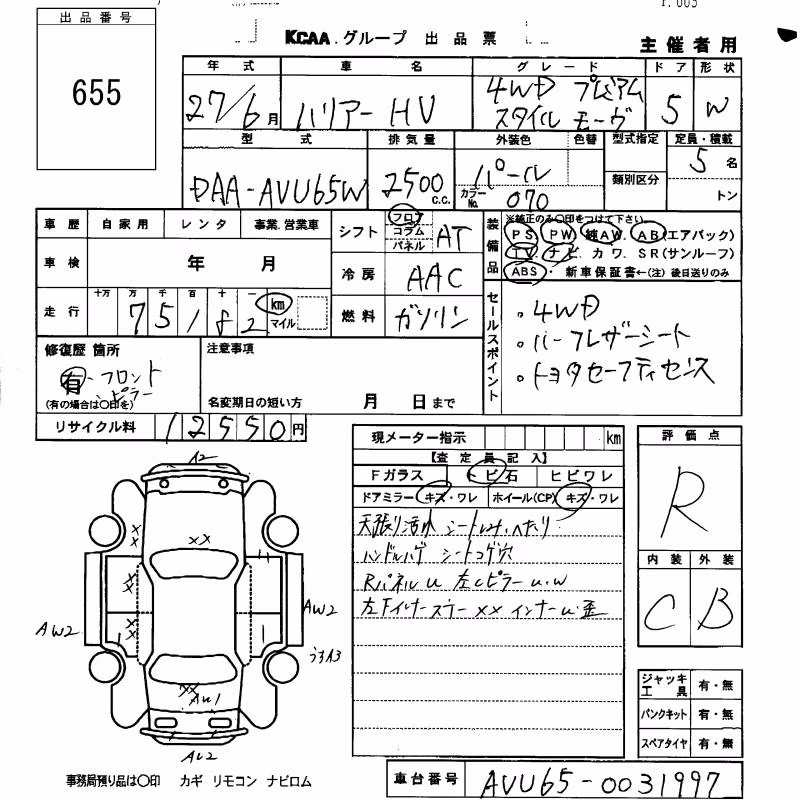 出品番号
655
KCAA.グループ 出品票
主催者用
年式 車名 グレード ドア 形状
27/6月 ハリアー HV 4WD プレミアム スタイル モーヴ 5 W
型式 排気量 外装色 色替 型式指定 定員・積載
DAA-AVU65W 2500 c.c. パール 5名
カラーNo. 070 類別区分 トン
車歴 自家用 レンタ 事業.営業車
シフト フロア コラム パネル AT
装備品 ※純正のみ○印をつけて下さい
PS PW 純AW. AB(エアバック)
TV. ナビ. カワ. SR(サンルーフ)
ABS・新車保証書←(注)後日送りのみ
車検 年 月
冷房 AAC
走行 十万 万 千 百 十 一 km マイル
75182
燃料 ガソリン
セールスポイント
。4WD
。ハーフレザーシート
。トヨタセーフティセンス
修復歴 箇所
有-フロント
ピラー
(有の場合は○印を)
注意事項
名変期日の短い方 月 日まで
リサイクル料 12550円
現メーター指示 km
【査定員記入】
Fガラス トビ石 ヒビワレ
ドアミラー キズ・ワレ ホイール(CP) キズ・ワレ
天張り活水 シートしみ.へたり
ハンドルハゲ シートコゲ穴
Rパネルu 左cピラーu.w
評価点
R
内装 外装
C B
A2
AW2
AW2
うすA3
AW1
AW2
ジャッキ工具 有・無
パンクキット 有・無
スペアタイヤ 有・無
事務局預り品は○印 カギ リモコン ナビロム
車台番号 AVU65-0031997